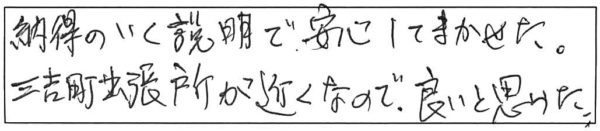 納得のいく説明で、安心してまかせた。
三吉町出張所が近くなので、良いと思った。